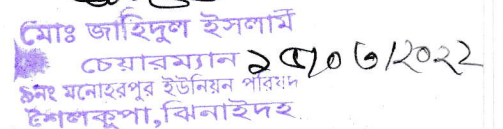 মোঃ জাহিদুল ইসলাম
চেয়ারম্যান ১৫/০৩/২০২২
৯নং মনোহরপুর ইউনিয়ন পরিষদ
শৈলকুপা, ঝিনাইদহ